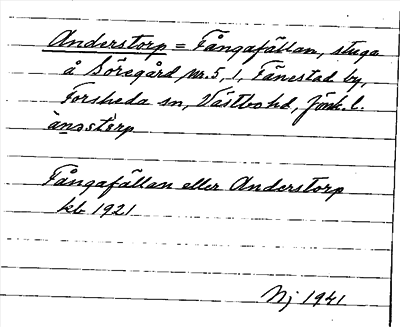 Anderstorp = Fångafällan, stuga
å Söregård Nr. 5, 1, Fänestad by,
Forsheda sn, Västbo hd, Jönk. l.
ànəstərp
Fångafällan eller Anderstorp
kb 1921
Nj 1941